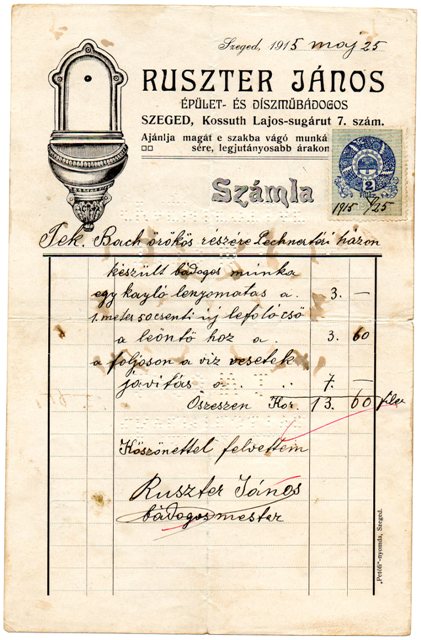 Szeged, 1915 maj 25
RUSZTER JÁNOS
ÉPÜLET- ÉS DÍSZMŰBÁDOGOS
SZEGED, Kossuth Lajos-sugárut 7. szám.
Ajánlja magát e szakba vágó munká
sére, legjutányosabb árakon
2
1915 5/25
Számla
Tek. Bach örökös részére Lechner tári házon
készült bádogos munka
egy kayló lenyomatas a. 3. —
1. meter 50 centi új lefoló cső
a leöntő hoz a 3. 60
a foljoson a viz vesetek
javitás a 7. —
Öszeszen Kor. 13. 60 filer
Köszönettel felvettem
Ruszter János
bádogosmester
"Petőfi"-nyomda, Szeged.